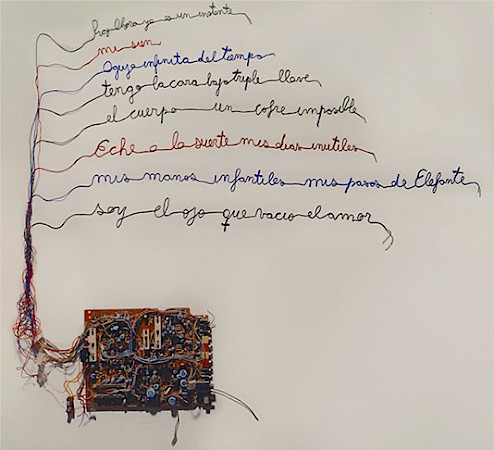 hoy ahora ya es un instante
mi sien
Aguja infinita del tiempo
tengo la cara bajo triple llave
el cuerpo un cofre imposible
Eche a la suerte mis dias inutiles
mis manos infantiles mis pasos de Elefante
soy el ojo que vacio el amor